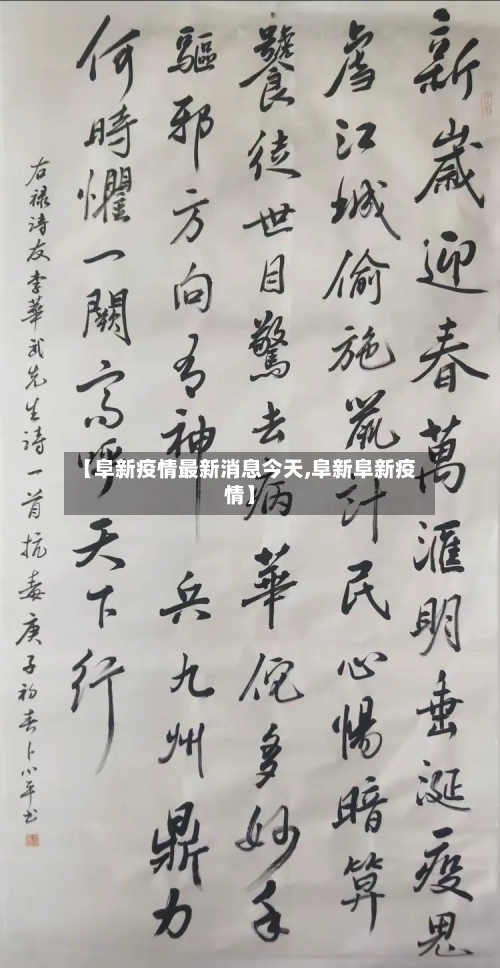 新歲迎春萬滙明垂涎疫鬼
虐江城偷施鼠計民心惕暗算
饕徒世目驚去病華佗多妙手
驅邪方向有神兵九州鼎力
何時懼一闋高呼天下行
右禄诗友李華武先生诗一首抗毒庚子初春卜小平书
【阜新疫情最新消息今天,阜新阜新疫
情】